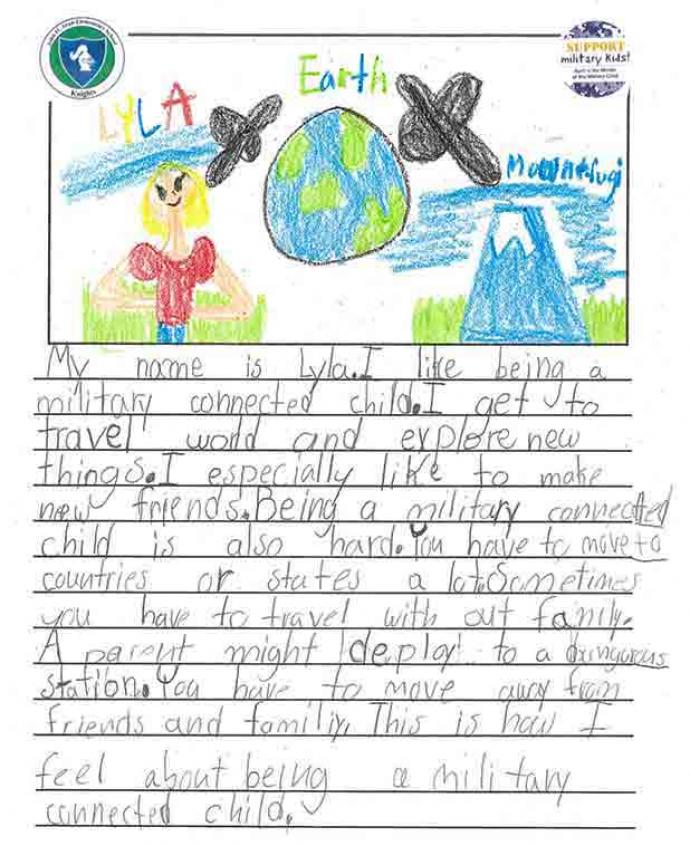 Knights
SUPPORT
military kids!
April is the Month
of the Military Child
Earth
LYLA
My name is Lyla.I like being a
military connected child.I get to
travel world and explore new
things.I especially like to make
new friends.Being a military connected
child is also hard.You have to move to
countries or states a lot.Sometimes
you have to travel with out family.
A parent might deploy to a
station.You have to move away from
friends and familiy. This is how I
feel about being a military
connected child.